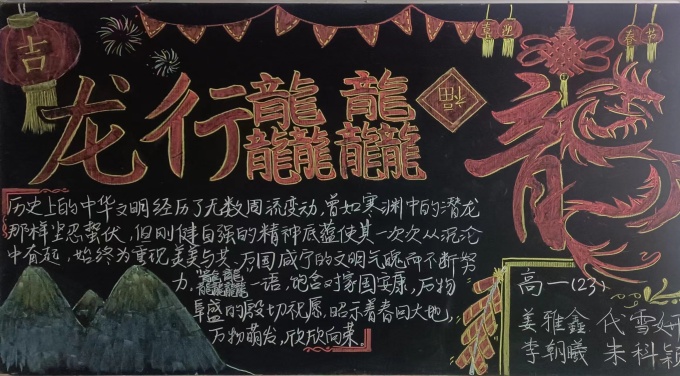 吉
喜迎
春节
龙行龘龘
福
龍
历史上的中华文明经历了无数周流变动,曾如寒渊中的潜龙
那样坚忍蛰伏,但刚健自强的精神底蕴使其一次次从沉沦
中奋起,始终为重现美美与共、万国咸宁的文明元魄而不断努
力,龘龘一语,饱含对家国安康,万物
阜盛的殷切祝愿,昭示着春回大地,
万物萌发,欣欣向荣.
高一(23)
姜雅鑫 代雪妍
李朝曦 朱科颖